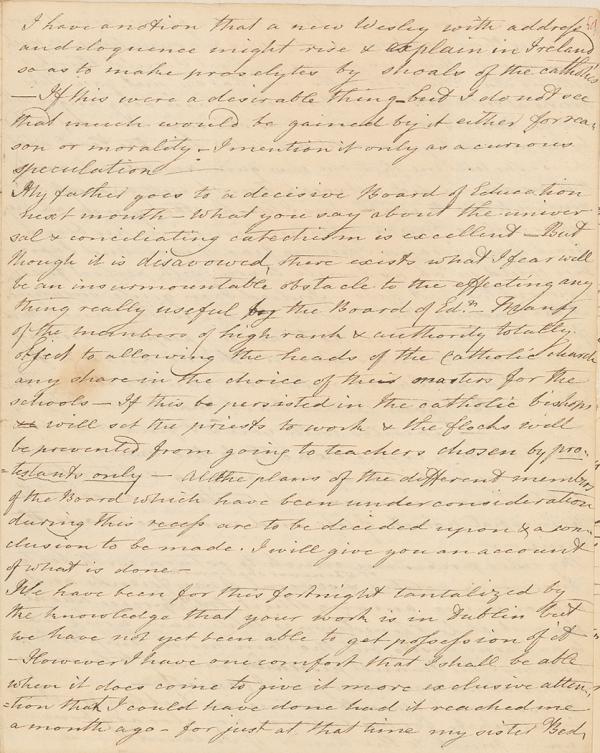 I have a notion that a new Wesley with address
and eloquence might rise & explain in Ireland
so as to make proselytes by shoals of the catholics
— If this were a desirable thing – but I do not see
that much would be gained by it either for rea-
son or morality – I mention it only as a curious
speculation —
My father goes to a decisive Board of Education
next month – What you say about the univer
sal & conciliating catechism is excellent – But
though it is disavowed, there exists what I fear will
be an insurmountable obstacle to the effecting any
thing really useful by the Board of Ed.n – Many
of the members of high rank & authority totally
object to allowing the heads of the Catholic Church
any share in the choice of their masters for the
schools – If this be persisted in the catholic bishops
will set the priests to work & the flocks will
be prevented from going to teachers chosen by pro-
=testants only – All the plans of the different members
of the Board which have been under consideration
during this recess are to be decided upon & a con-
clusion to be made. I will give you an account
of what is done –
We have been for this fortnight tantalized by
the knowledge that your work is in Dublin but
we have not yet been able to get possession of it
– However I have one comfort that I shall be able
when it does come to give it more exclusive atten-
=tion than I could have done had it reached me
a month ago – for just at that time my sister Bed